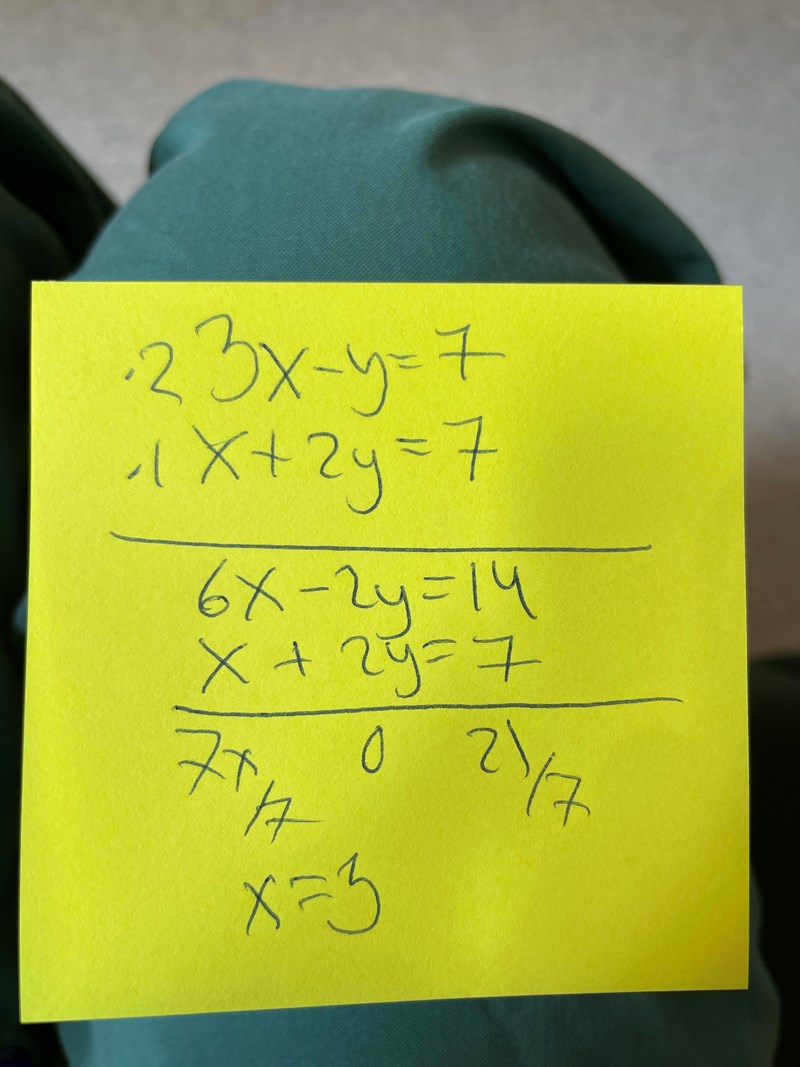 ·2 3x-y=7
·1 x+2y=7
6x-2y=14
x+2y=7
7x/7 0 21/7
x=3